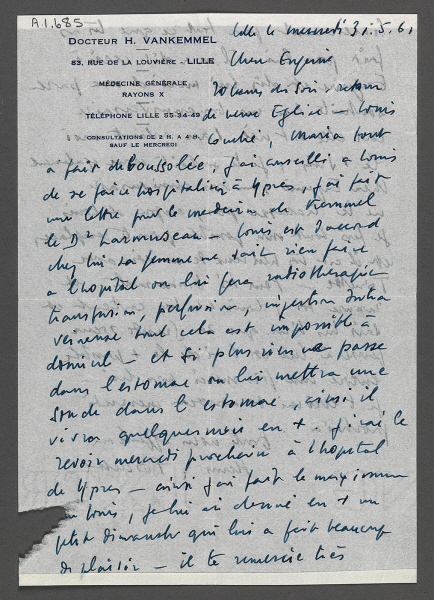 A1.685
DOCTEUR H. VANKEMMEL
83, RUE DE LA LOUVIÈRE - LILLE
MÉDECINE GÉNÉRALE
RAYONS X
TÉLÉPHONE LILLE 55-34-49
CONSULTATIONS DE 2 H. A 4 H.
SAUF LE MERCREDI
Lille le mercredi 31.5.61
Cher Eugène
20 heures du soir - retour
de neuve Eglise - Louis
couché, Maria tout
a fait deboussolée, j'ai conseillé a Louis
de se faire hospitaliser à Ypres, j'ai fait
une lettre pour le medecin de
le Dr - Louis est d'accord
chez lui sa femme ne sait rien faire
a l'hopital on lui fera radiotherapie
transfusion, perfusion, injection intra
veineuse tout cela est impossible à
domicile - et si plus rien ne passe
dans l'estomac on lui mettra une
sonde dans l'estomac, ainsi il
vivra quelques mois en +, j'irai le
revoir mercredi prochain à l'hopital
de Ypres - ainsi j'ai fait le maximum
Louis, je lui ai donné en + un
petit dimanche qui lui a fait beaucoup
de plaisir - il te remercie très